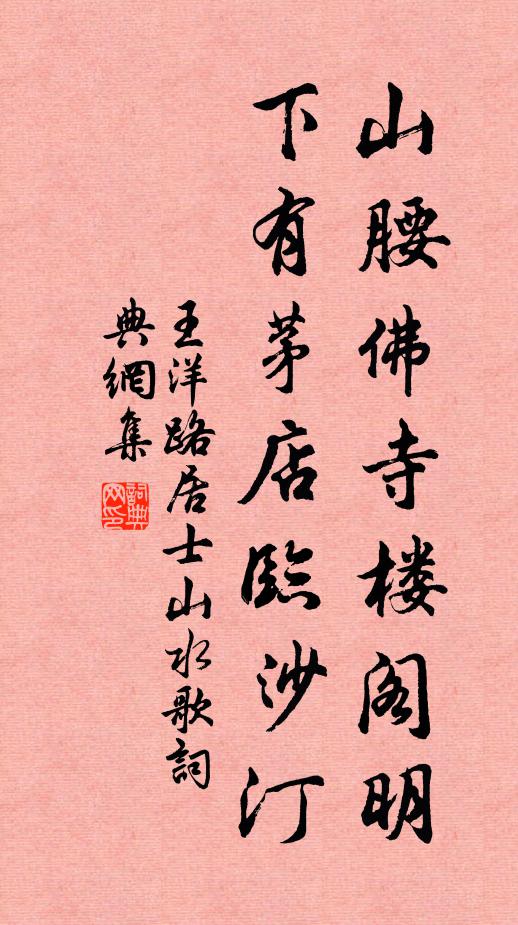 山腰佛寺楼阁明
下有茅店臨沙汀
王洋路居士山水歌詞
典網集
詞典网印